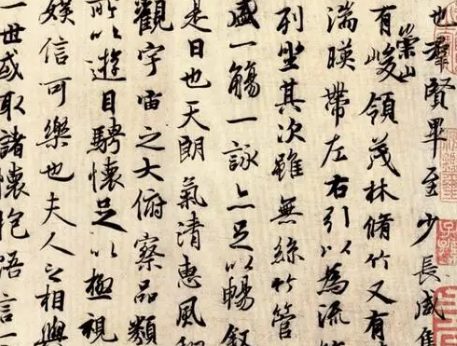 也羣賢畢至少長咸
有崇山峻領茂林脩竹又有
湍暎帶左右引以為流
列坐其次雖無絲竹管
盛一觴一詠亦足以暢敘
是日也天朗氣清惠風
觀宇宙之大俯察品類
所以遊目騁懷足以極視
娛信可樂也夫人之相與
一世或取諸懷抱悟言一